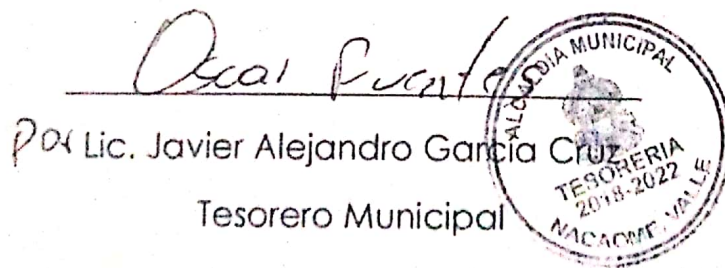 Oscar Fuentes
Por Lic. Javier Alejandro García Cruz
Tesorero Municipal
ALCALDIA MUNICIPAL
TESORERIA
2018-2022
NACAOME, VALLE